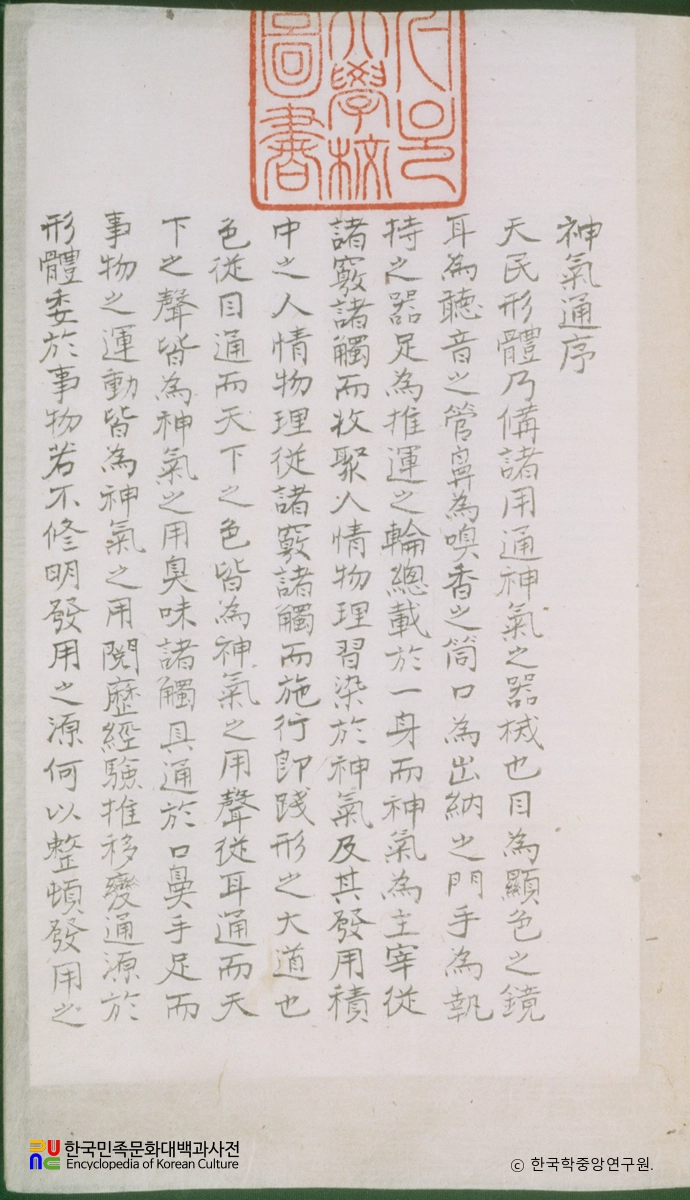 大學校
圖書
神氣通序
天民形體乃備諸用通神氣之器械也目為顯色之鏡
耳為聽音之管鼻為嗅香之筒口為出納之門手為執
持之器足為推運之輪總載於一身而神氣為主宰從
諸竅諸觸而收聚人情物理習染於神氣及其發用積
中之人情物理從諸竅諸觸而施行即踐形之大道也
色從目通而天下之色皆為神氣之用聲從耳通而天
下之聲皆為神氣之用臭味諸觸具通於口鼻手足而
事物之運動皆為神氣之用閱歷經驗推移變通源於
形體委於事物若不修明發用之源何以整頓發用之
한국민족문화대백과사전
Encyclopedia of Korean Culture
© 한국학중앙연구원.